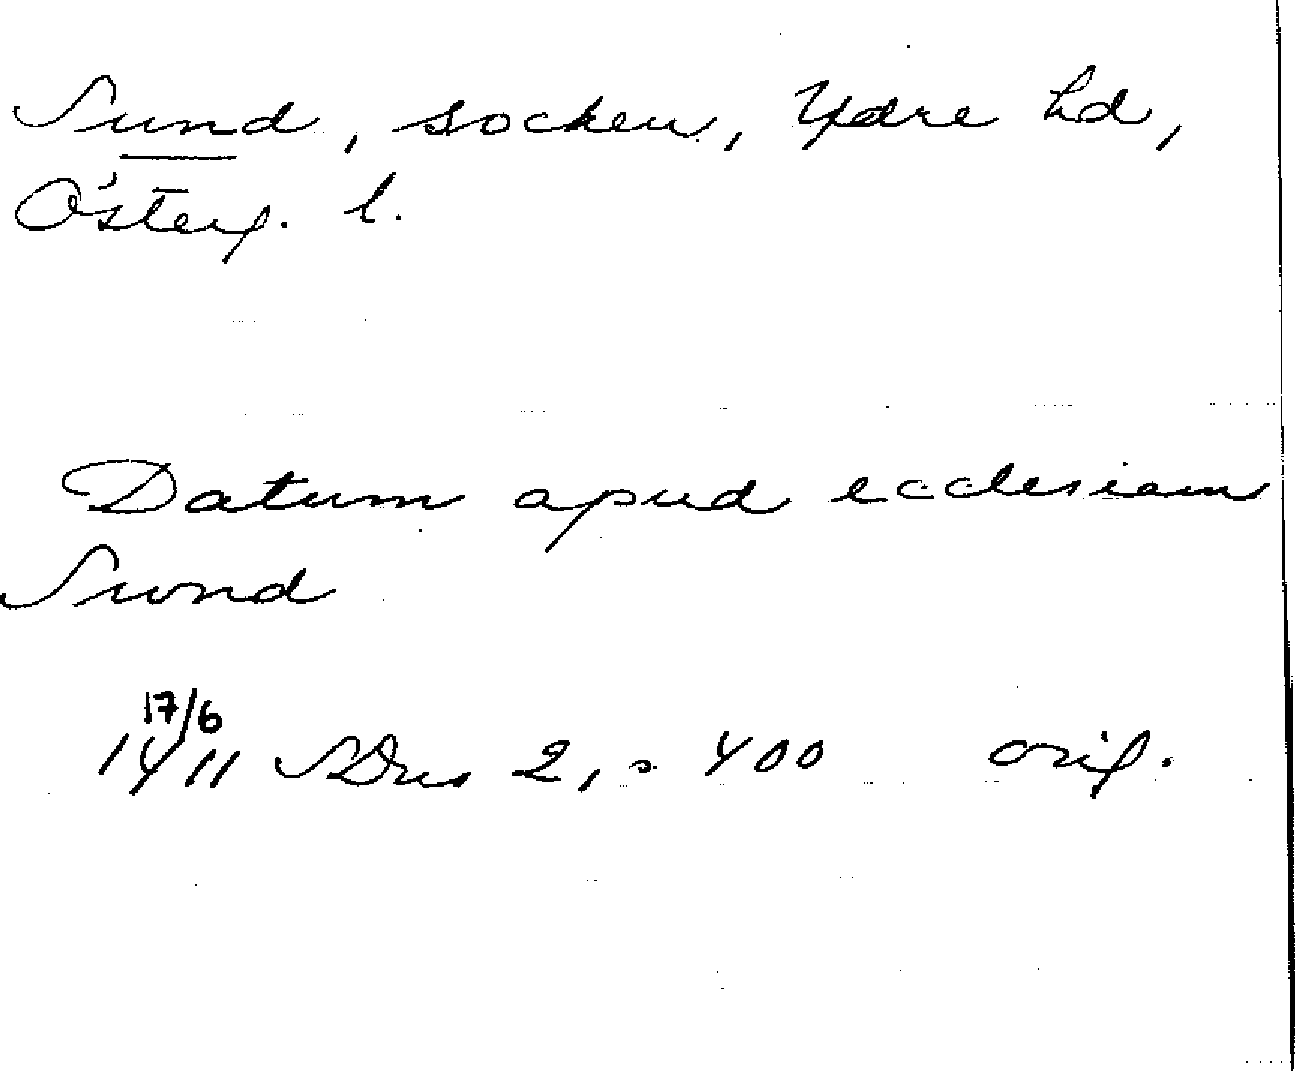 Sund, socken, Ydre hd,
Österg. l.
Datum apud ecclesiam
Swnd
17/6
1411 SDns 2, s. 400 orig.